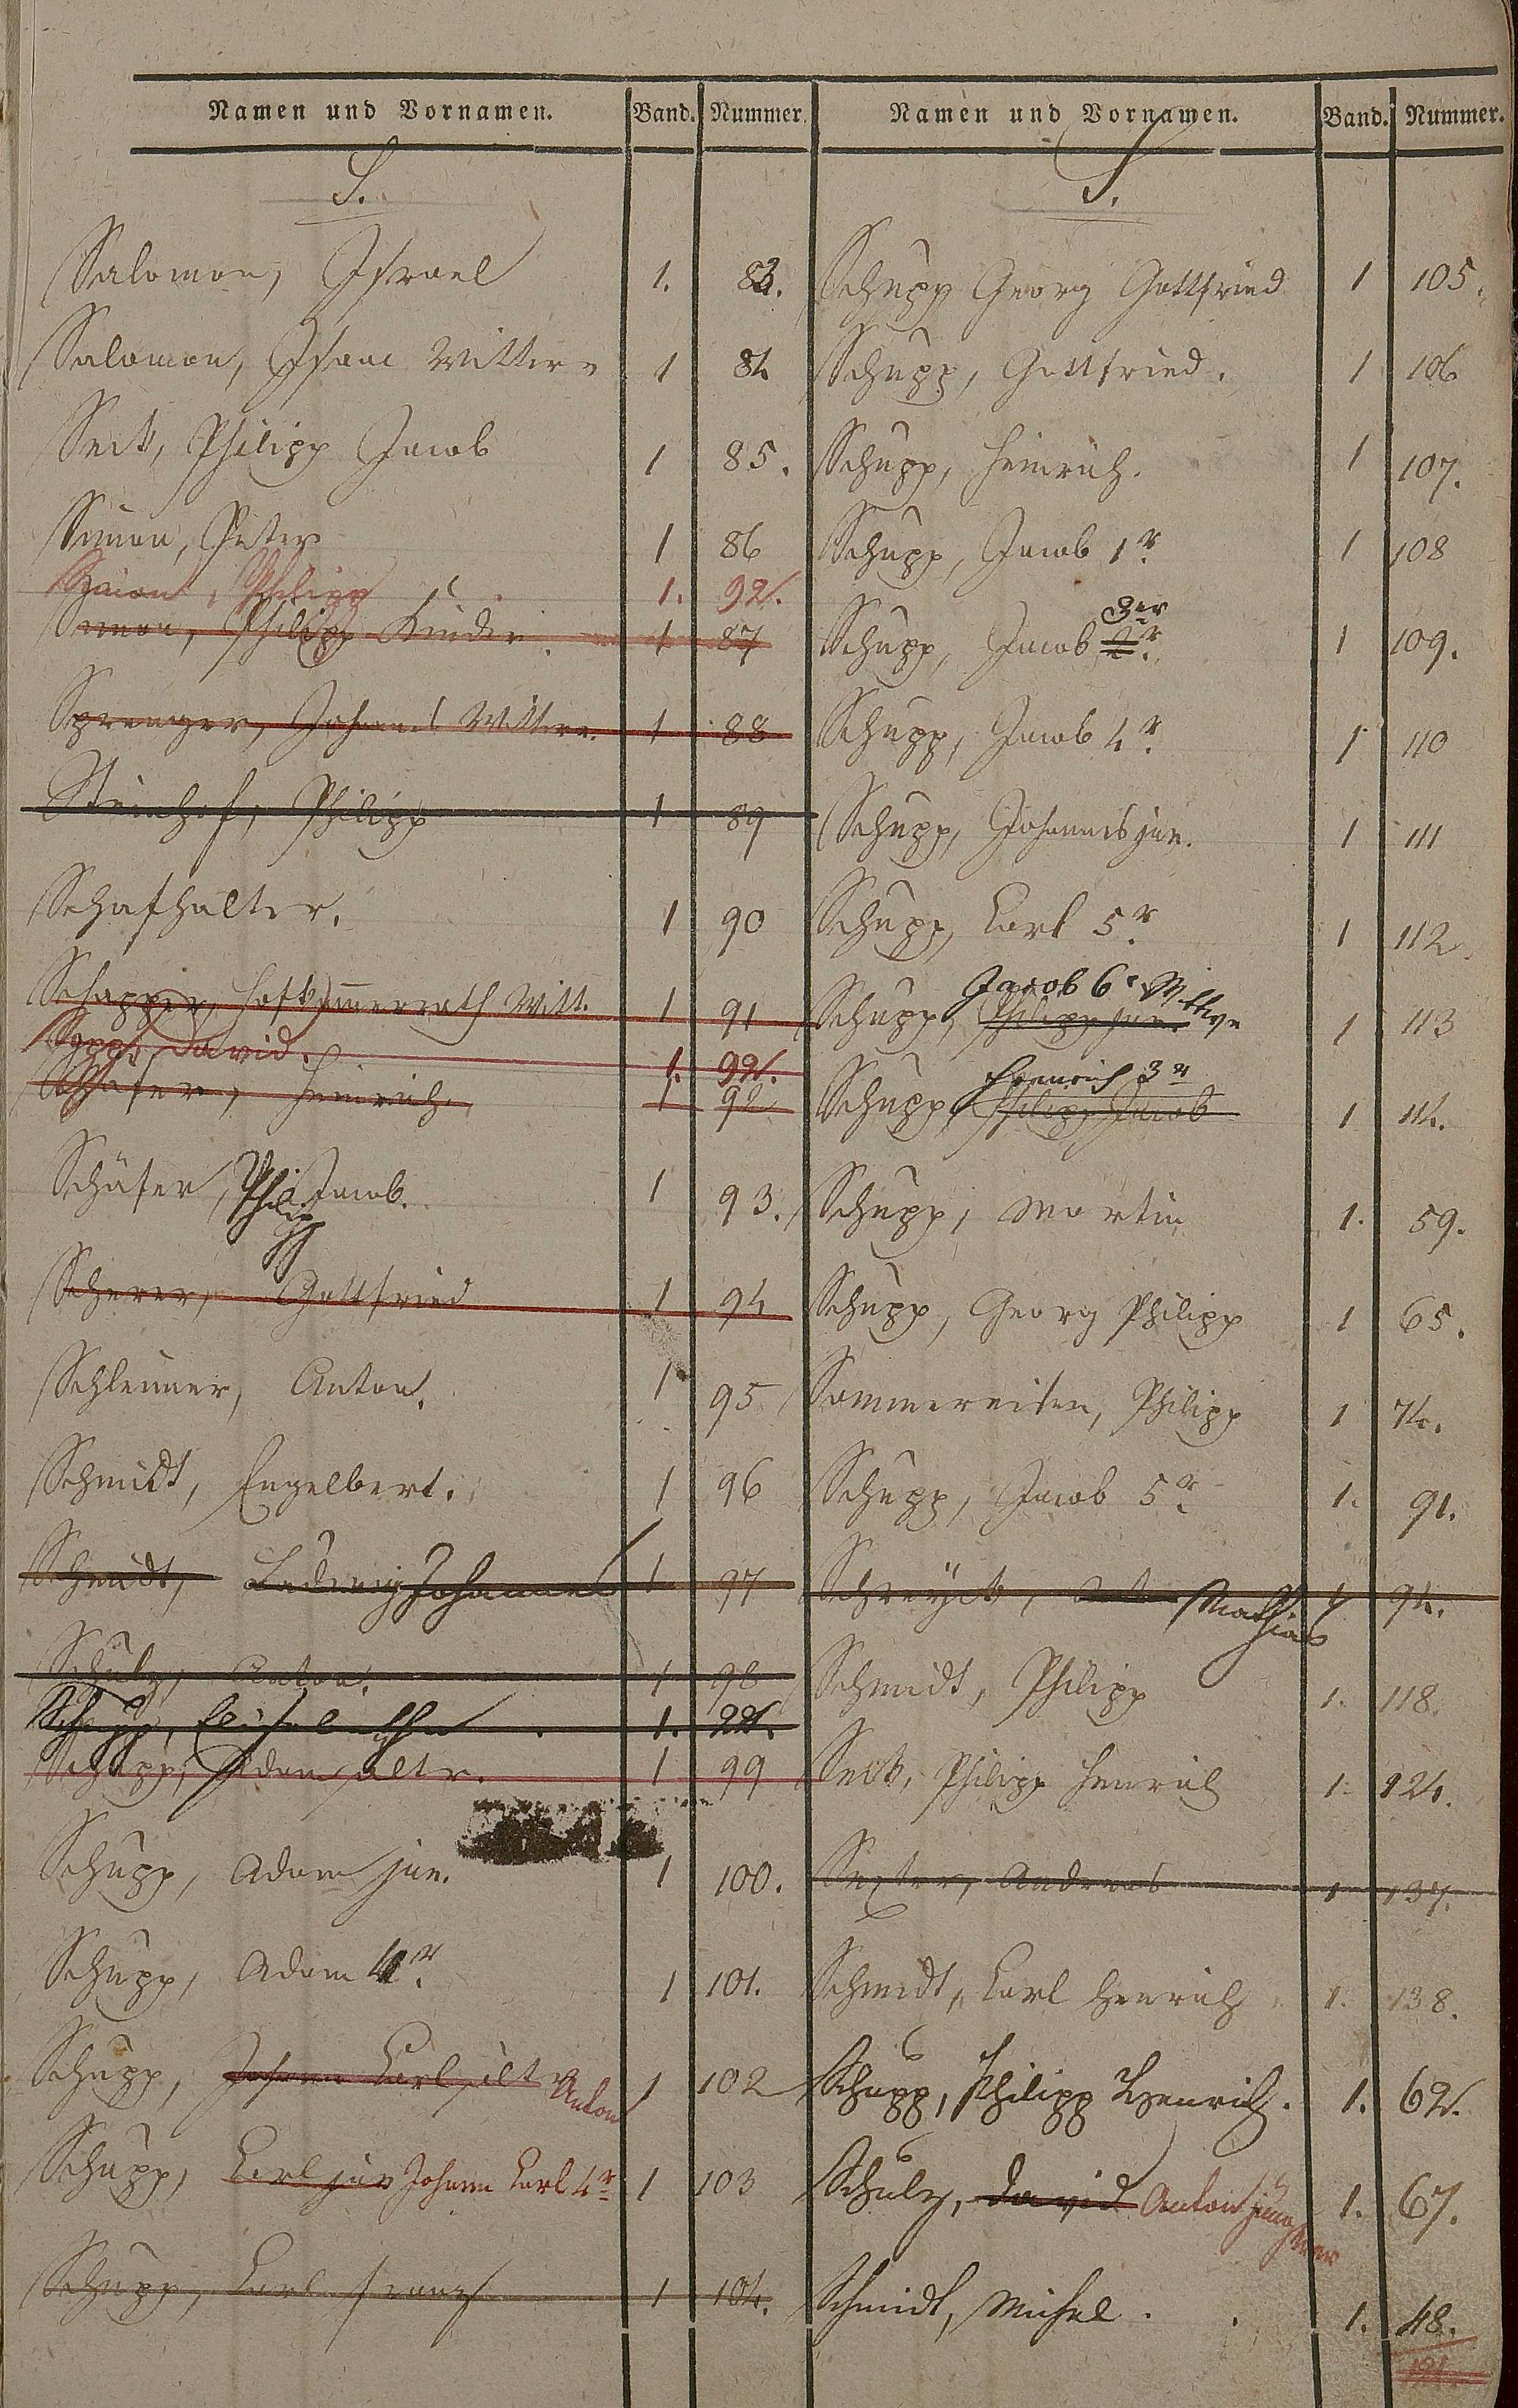 Namen und Vornamen. Band. Nummer.
S.
Salomon, Israel 1. 83.
Salomon, Isaac Wittwe 1 84
Seck, Philipp Jacob 1 85.
Simon, Peter 1 86
Simon, Philipp 1. 92.
Simon, Philipp Kinder. 1 87
Sprenger, Johannes Wittwe. 1 88
Steinhof, Philipp 1 89
Schafhalter. 1 90
Schapper, Hofkammerrath Witt. 1 91
David. 1. 92.
Schäfer, Heinrich. 1 92
Schäfer, Philipp Jacob. 1 93.
Scherer, Gottfried 1 94
Schleimer, Anton. 1 95
Schmidt, Engelbert. 1 96
Schmidt, Ludwig Johannes 1 97
Schulz, Anton. 1 98
Schupp, Elisabetha 1. 22.
Schupp, Adam altr. 1 99
Schupp, Adam jun. 1 100.
Schupp, Adam 4r. 1 101.
Schupp, Johann Carl altr Anton 1 102
Schupp, Carl jun Johann Carl 4r 1 103
Schupp, Carl Franz 1 104.
Namen und Vornamen. Band. Nummer.
S.
Schupp Georg Gottfried 1 105.
Schupp, Gottfried. 1 106
Schupp, Heinrich. 1 107.
Schupp, Jacob 1r. 1 108
Schupp, Jacob 2r. 3er 1 109.
Schupp, Jacob 4r. 1 110
Schupp, Johannes jun. 1 111
Schupp, Carl 5r. 1 112
Schupp, Philipp jun. Jacob 6r Wittwe 1 113
Schupp, Philipp Jacob Henrich 3r 1 114.
Schupp, Martin 1. 59.
Schupp, Georg Philipp 1 65.
Sommereisen, Philipp 1 74.
Schupp, Jacob 5r. 1. 91.
Mathias 1 94.
Schmidt, Philipp 1. 118.
Seck, Philipp Henrich 1. 124.
Sexter, Andreas 1 137.
Schmidt, Carl Henrich 1. 138.
Schupp, Philipp Henrich. 1. 62.
Schulz, David Anton jüngster 1. 67.
Schmidt, Michel. 1. 48.